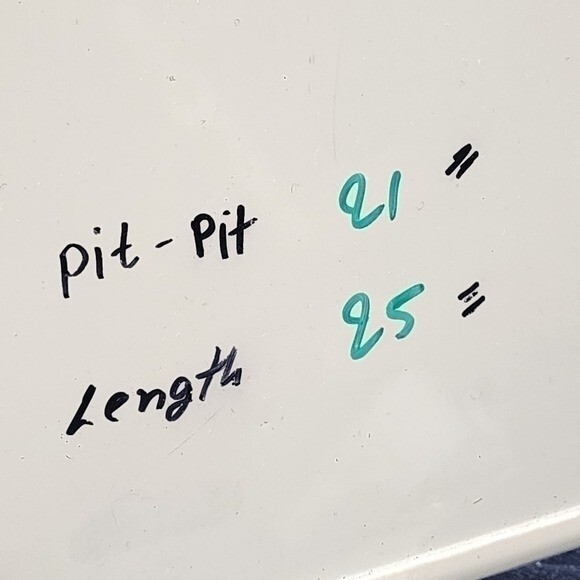 Pit - Pit 21 "
Length 25 "